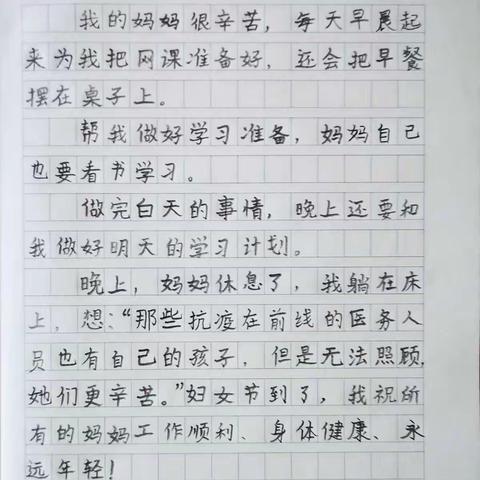 我的妈妈很辛苦，每天早晨起
来为我把网课准备好，还会把早餐
摆在桌子上。
帮我做好学习准备，妈妈自己
也要看书学习。
做完白天的事情，晚上还要和
我做好明天的学习计划。
晚上，妈妈休息了，我躺在床
上，想：“那些抗疫在前线的医务人
员也有自己的孩子，但是无法照顾，
她们更辛苦。”妇女节到了，我祝所
有的妈妈工作顺利、身体健康、永
远年轻！